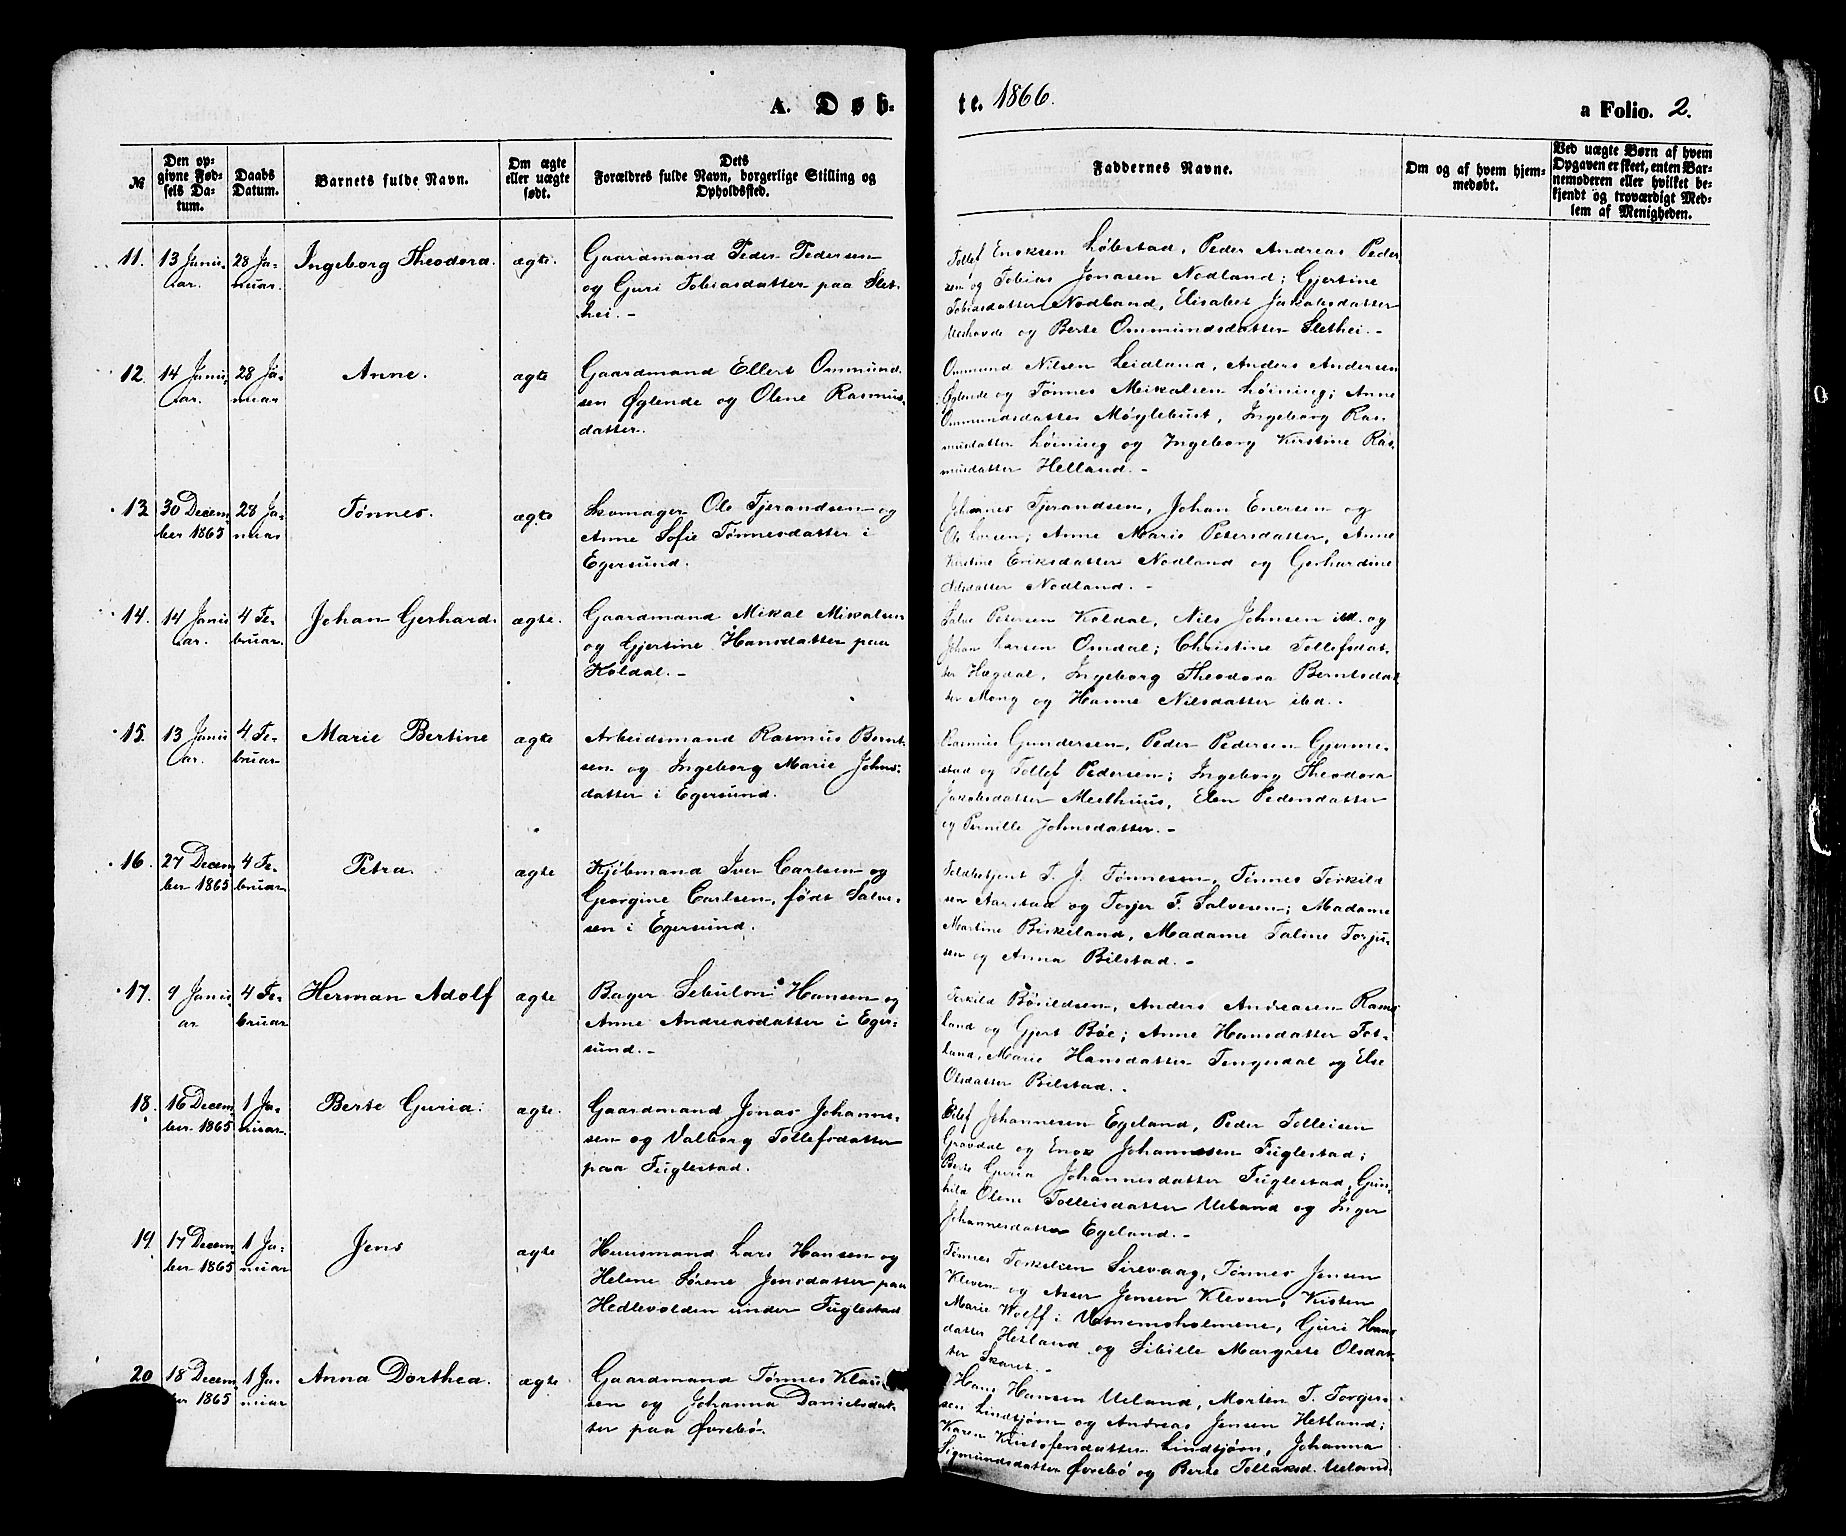 A. Døb-
te. 1866.
a Folio. 2.
№
Den op-
givne Fød-
sels Da-
tum.
Daabs
Datum.
Barnets fulde Navn.
Om ægte
eller uægte
født.
Dets
Forældres fulde Navn, borgerlige Stilling og
Opholdssted.
Faddernes Navne.
Om og af hvem hjem-
medøbt.
Ved uægte Børn af hvem
Opgaven er skeet, enten Bar-
nemoderen eller hvilket be-
kjendt og troværdigt Med-
lem af Menigheden.
11. 13 Janu- 28 Ja- Ingeborg Theodora. ægte. Gaardmand Peder Pedersen
ar. nuar. og Guri Tobiasdatter paa Slet-
hei. -
Tollef Enoksen Løbstad, Peder Andreas Peder
sen og Tobias Jonasen Nodland; Gjertine
Tobiasdatter Nodland, Elisabet Jakobsdatter
og Berte Ommundsdatter Slethei. -
12. 14 Janu- 28 Ja- Anne. ægte Gaardmand Ellert Ommund-
ar. nuar. sen Øglende og Olene Rasmus-
datter.
Ommund Nilsen Leidland, Anders Andersen
Øglende og Tønnes Mikalsen Løining; Anne
Ommundsdatter Møglebust, Ingeborg Ras-
musdatter Løining og Ingeborg Kirstine Ras-
musdatter Helland. -
13. 30 Decem- 28 Ja- Tønnes. ægte Skomager Ole Tjerandsen og
ber 1865 nuar Anne Sofie Tønnesdatter i
Egersund.
Johannes Tjerandsen, Johan Enersen og
Ole Larsen; Anne Marie Petersdatter, Anne
Kirstine Eriksdatter Nodland og Gerhardine
Nilsdatter Nodland. -
14. 14 Janu- 4 Fe- Johan Gerhard. ægte. Gaardmand Mikal Mikalsen
ar. bruar. og Gjertine Hansdatter paa
Koldal. -
Salve Petersen Koldal, Nils Johnsen ibd. og
Johan Larsen Omdal; Christine Tollefsdat-
ter Hægdal, Ingeborg Theodora Berntsdat-
ter Mong og Hanne Nilsdatter ibd. -
15. 13 Janu- 4 Fe- Marie Bertine ægte Arbeidsmand Rasmus Bernt-
ar. bruar sen og Ingeborg Marie Johns-
datter i Egersund.
Rasmus Gundersen, Peder Pedersen Gjerme-
stad og Tollef Pedersen; Ingeborg Theodora
Jakobsdatter Meelhuus, Elen Pedersdatter
og Pernille Johnsdatter. -
16. 27 Decem- 4 Fe- Petra. ægte Kjøbmand Iver Carlsen og
ber 1865 bruar Georgine Carlsen, født Salve-
sen i Egersund.
Toldbetjent T. J. Tønnesen, Tønnes Terkild-
sen Aarstad og Torjer F. Salvesen; Madame
Martine Birkeland, Madame Taline Torju-
sen og Anna Bilstad. -
17. 9 Janu- 4 Fe- Herman Adolf ægte Bager Sebulon Hansen og
ar bruar Anne Andreasdatter i Eger-
sund. -
Terkild Bøvildsen, Anders Andreasen Rams-
land og Gjert Bøe; Anne Hansdatter Tot-
land, Marie Hansdatter Tengesdal og Else
Olsdatter Bilstad. -
18. 16 Decem- 1 Ja- Berte Guria. ægte. Gaardmand Jonas Johanne-
ber 1865 nuar. sen og Valborg Tollefsdatter
paa Fuglestad.
Eilef Johannesen Egeland, Peder Tolleisen
Gravdal og Enok Johannesen Fuglestad;
Berte Guria Johannesdatter Fuglestad, Gun-
hild Olene Tolleisdatter Ueland og Inger
Johannesdatter Egeland. -
19. 17 Decem- 1 Ja- Jens ægte Huusmand Lars Hansen og
ber 1865 nuar Helene Sørene Jensdatter paa
Hedlevolden under Fuglestad
Tønnes Torkelsen Sirevaag, Tønnes Jensen
Kleven og Asser Jensen Kleven; Kirsten
Marie Wolff i Vatnemsholmene, Guri Hans-
datter Hetland og Sibille Margrete Olsdat-
ter Skaret. -
20 18 Decem- 1 Ja- Anna Dorthea. ægte. Gaardmand Tønnes Klau-
ber 1865 nuar sen og Johanna Danielsdat-
ter paa Øvrebø.
Hans Hansen Ueland, Morten T. Torger-
sen Lindtjørn og Andreas Jensen Hetland;
Karen Kristofersdatter Lindtjørn, Johanna
Sigmundsdatter Øvrebø og Berte Tollaksd. Ueland.